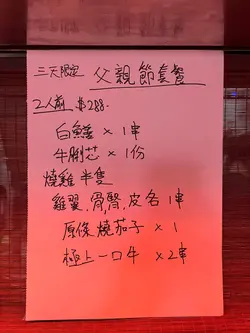 三天限定 父親節套餐
2人前 $288.
白鱔 × 1串
牛脷芯 × 1份
燒雞半隻
雞翼.骨,腎,皮各1串
原條燒茄子 × 1
極上一口牛 × 2串